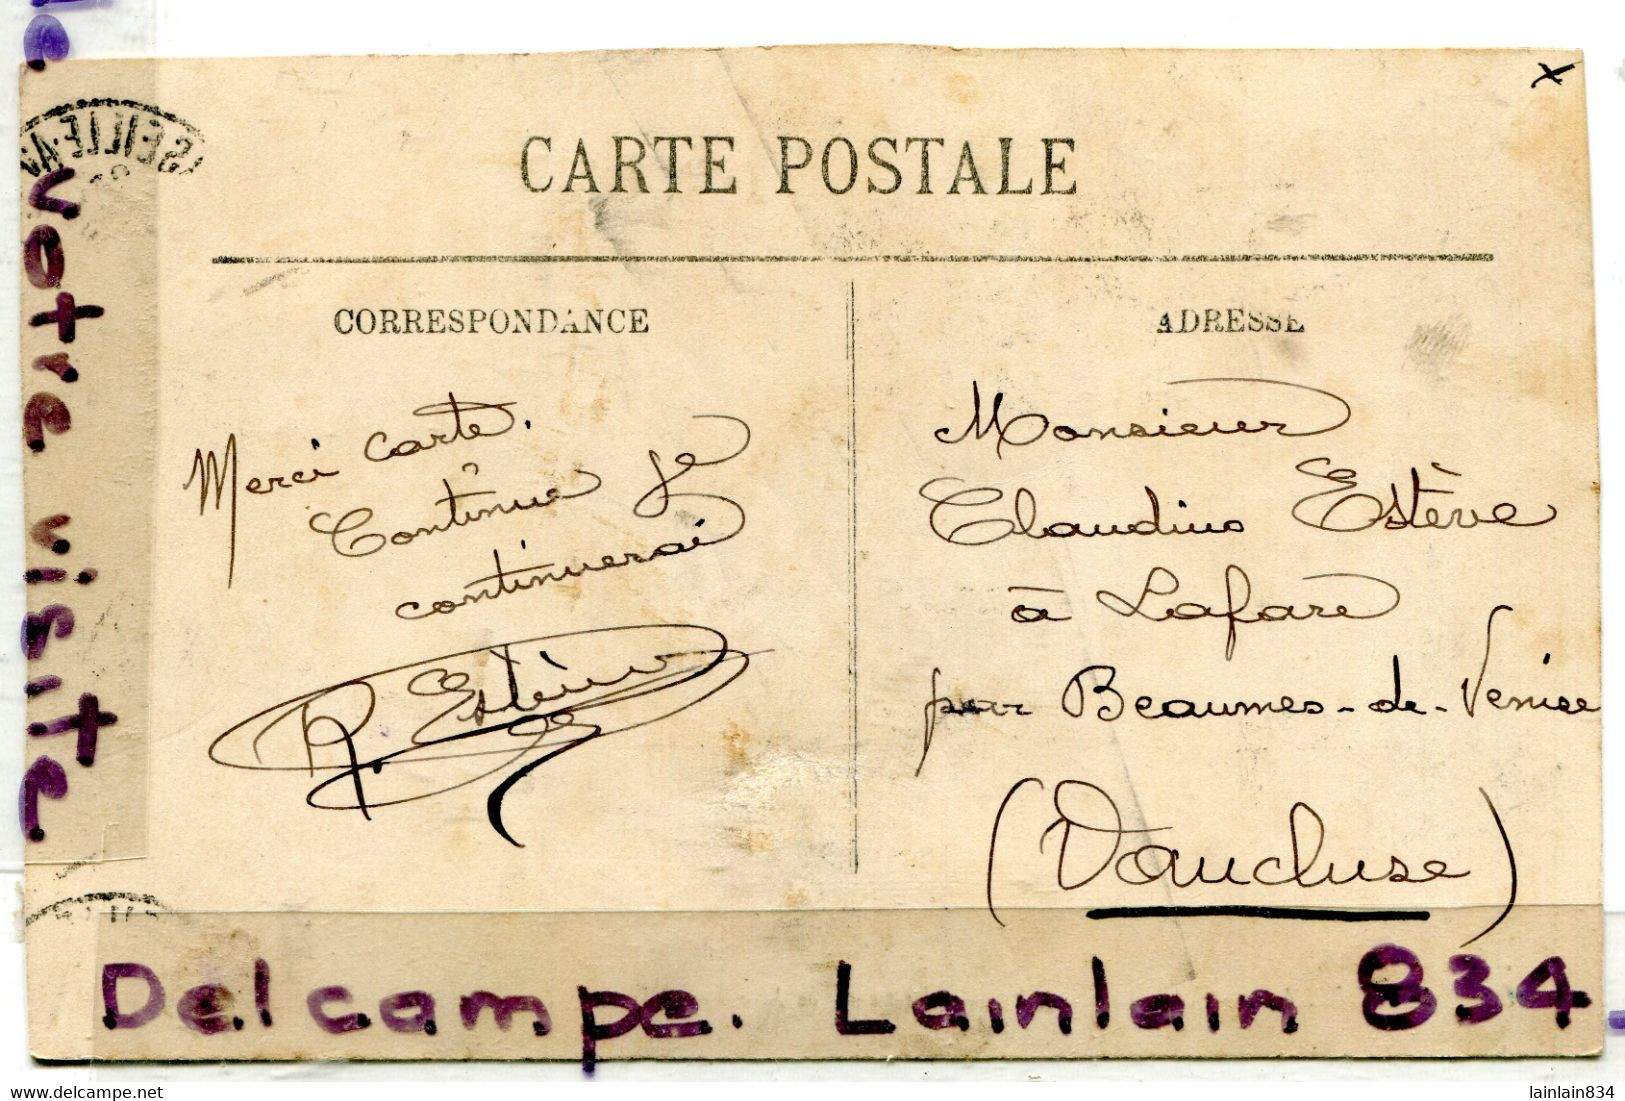 CARTE POSTALE
CORRESPONDANCE
ADRESSE
Merci carte.
Continue je
continuerai
R. Estève
Monsieur
Claudius Estève
à Lafare
par Beaumes-de-Venise
(Vaucluse)
votre visite
Delcampe. Lainlain 834
lainlain834